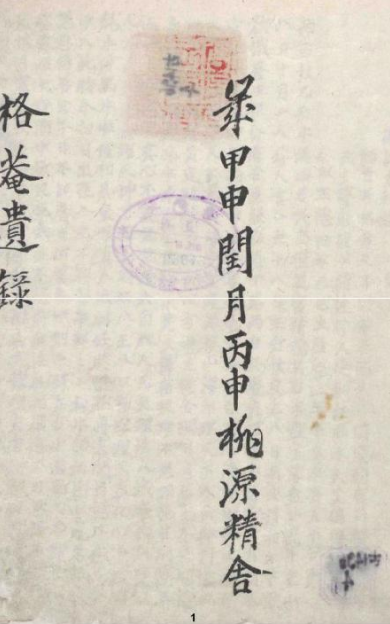 歲甲申閏月丙申桃源精舍
格菴遺錄
1